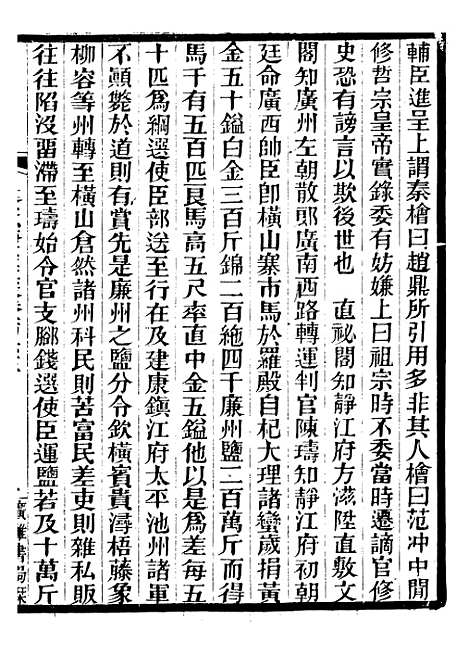 輔臣進呈上謂秦檜曰趙鼎所引用多非其人檜曰范冲中間
修哲宗皇帝實錄委有妨嫌上曰祖宗時不委當時遷謫官修
史恐有謗言以欺後世也　直祕閣知靜江府方滋陞直敷文
閣知廣州左朝散郎廣南西路轉運判官陳璹知靜江府初朝
廷命廣西帥臣卽橫山寨市馬於羅殿自杞大理諸蠻歲捐黃
金五十鎰白金三百斤錦二百絁四千廉州鹽二百萬斤而得
馬千有五百匹艮馬高五尺率直中金五鎰他以是爲差每五
十匹爲綱選使臣部送至行在及建康鎭江府太平池州諸軍
不顚斃於道則有賞先是廉州之鹽分令欽橫賓貴潯梧藤象
柳容等州轉至橫山倉然諸州科民則苦富民差吏則雜私販
往往陷沒畱滯至璹始令官支腳錢選使臣運鹽若及十萬斤
廣雅書局栞